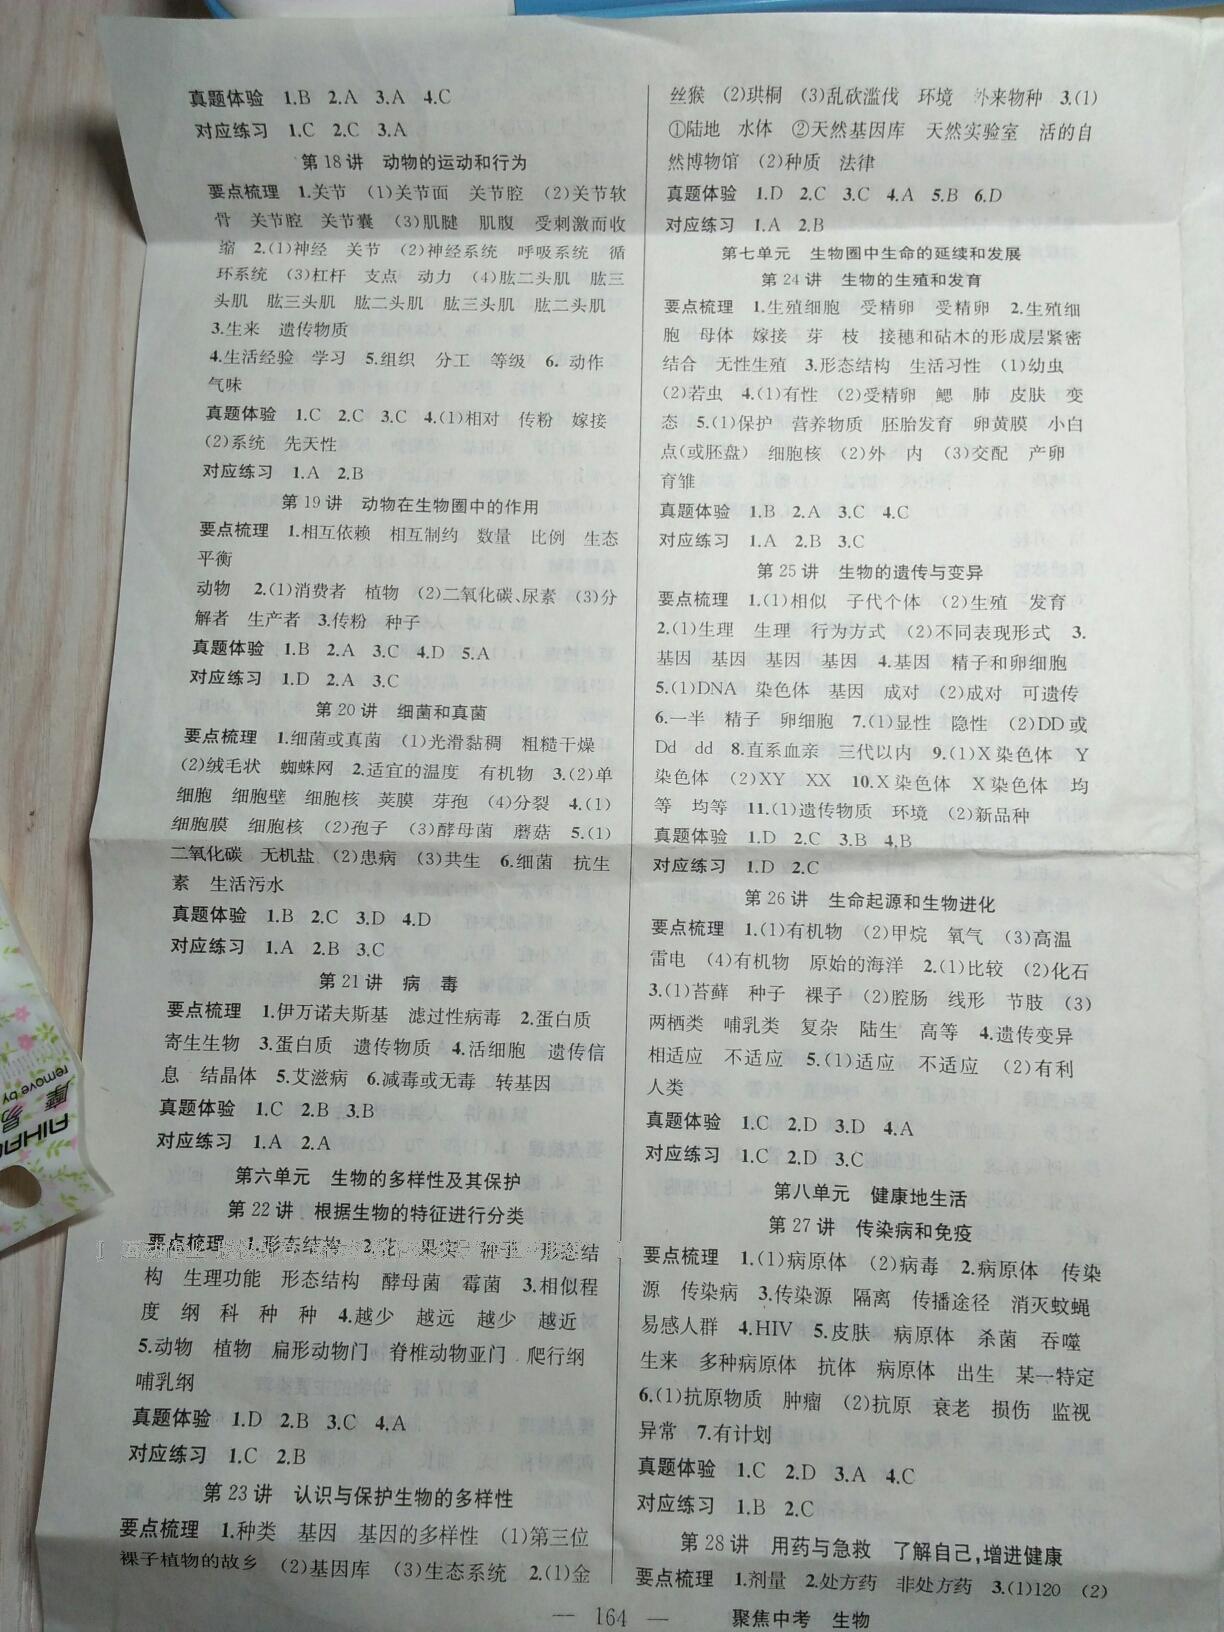 真题体验 1.B 2.A 3.A 4.C
对应练习 1.C 2.C 3.A
第18讲 动物的运动和行为
要点梳理 1.关节 (1)关节面 关节腔 (2)关节软
骨 关节腔 关节囊 (3)肌腱 肌腹 受刺激而收
缩 2.(1)神经 关节 (2)神经系统 呼吸系统 循
环系统 (3)杠杆 支点 动力 (4)肱二头肌 肱三
头肌 肱三头肌 肱二头肌 肱三头肌 肱二头肌
3.生来 遗传物质
4.生活经验 学习 5.组织 分工 等级 6.动作
气味
真题体验 1.C 2.C 3.C 4.(1)相对 传粉 嫁接
(2)系统 先天性
对应练习 1.A 2.B
第19讲 动物在生物圈中的作用
要点梳理 1.相互依赖 相互制约 数量 比例 生态
平衡
动物 2.(1)消费者 植物 (2)二氧化碳、尿素 (3)分
解者 生产者 3.传粉 种子
真题体验 1.B 2.A 3.C 4.D 5.A
对应练习 1.D 2.A 3.C
第20讲 细菌和真菌
要点梳理 1.细菌或真菌 (1)光滑黏稠 粗糙干燥
(2)绒毛状 蜘蛛网 2.适宜的温度 有机物 3.(2)单
细胞 细胞壁 细胞核 荚膜 芽孢 (4)分裂 4.(1)
细胞膜 细胞核 (2)孢子 (3)酵母菌 蘑菇 5.(1)
二氧化碳 无机盐 (2)患病 (3)共生 6.细菌 抗生
素 生活污水
真题体验 1.B 2.C 3.D 4.D
对应练习 1.A 2.B 3.C
第21讲 病 毒
要点梳理 1.伊万诺夫斯基 滤过性病毒 2.蛋白质
寄生生物 3.蛋白质 遗传物质 4.活细胞 遗传信
息 结晶体 5.艾滋病 6.减毒或无毒 转基因
真题体验 1.C 2.B 3.B
对应练习 1.A 2.A
第六单元 生物的多样性及其保护
第22讲 根据生物的特征进行分类
要点梳理 1.形态结构 2.花 果实 种子 形态结
构 生理功能 形态结构 酵母菌 霉菌 3.相似程
度 纲 科 种 种 4.越少 越远 越少 越近
5.动物 植物 扁形动物门 脊椎动物亚门 爬行纲
哺乳纲
真题体验 1.D 2.B 3.C 4.A
对应练习 1.C 2.B
第23讲 认识与保护生物的多样性
要点梳理 1.种类 基因 基因的多样性 (1)第三位
裸子植物的故乡 (2)基因库 (3)生态系统 2.(1)金
丝猴 (2)珙桐 (3)乱砍滥伐 环境 外来物种 3.(1)
①陆地 水体 ②天然基因库 天然实验室 活的自
然博物馆 (2)种质 法律
真题体验 1.D 2.C 3.C 4.A 5.B 6.D
对应练习 1.A 2.B
第七单元 生物圈中生命的延续和发展
第24讲 生物的生殖和发育
要点梳理 1.生殖细胞 受精卵 受精卵 2.生殖细
胞 母体 嫁接 芽 枝 接穗和砧木的形成层紧密
结合 无性生殖 3.形态结构 生活习性 (1)幼虫
(2)若虫 4.(1)有性 (2)受精卵 鳃 肺 皮肤 变
态 5.(1)保护 营养物质 胚胎发育 卵黄膜 小白
点(或胚盘) 细胞核 (2)外 内 (3)交配 产卵
育雏
真题体验 1.B 2.A 3.C 4.C
对应练习 1.A 2.B 3.C
第25讲 生物的遗传与变异
要点梳理 1.(1)相似 子代个体 (2)生殖 发育
2.(1)生理 生理 行为方式 (2)不同表现形式 3.
基因 基因 基因 基因 4.基因 精子和卵细胞
5.(1)DNA 染色体 基因 成对 (2)成对 可遗传
6.一半 精子 卵细胞 7.(1)显性 隐性 (2)DD或
Dd dd 8.直系血亲 三代以内 9.(1)X染色体 Y
染色体 (2)XY XX 10.X染色体 X染色体 均
等 均等 11.(1)遗传物质 环境 (2)新品种
真题体验 1.D 2.C 3.B 4.B
对应练习 1.D 2.C
第26讲 生命起源和生物进化
要点梳理 1.(1)有机物 (2)甲烷 氧气 (3)高温
雷电 (4)有机物 原始的海洋 2.(1)比较 (2)化石
3.(1)苔藓 种子 裸子 (2)腔肠 线形 节肢 (3)
两栖类 哺乳类 复杂 陆生 高等 4.遗传变异
相适应 不适应 5.(1)适应 不适应 (2)有利
人类
真题体验 1.C 2.D 3.D 4.A
对应练习 1.C 2.D 3.C
第八单元 健康地生活
第27讲 传染病和免疫
要点梳理 1.(1)病原体 (2)病毒 2.病原体 传染
源 传染病 3.传染源 隔离 传播途径 消灭蚊蝇
易感人群 4.HIV 5.皮肤 病原体 杀菌 吞噬
生来 多种病原体 抗体 病原体 出生 某一特定
6.(1)抗原物质 肿瘤 (2)抗原 衰老 损伤 监视
异常 7.有计划
真题体验 1.C 2.D 3.A 4.C
对应练习 1.B 2.C
第28讲 用药与急救 了解自己,增进健康
要点梳理 1.剂量 2.处方药 非处方药 3.(1)120 (2)
— 164 —
聚焦中考 生物
remove by